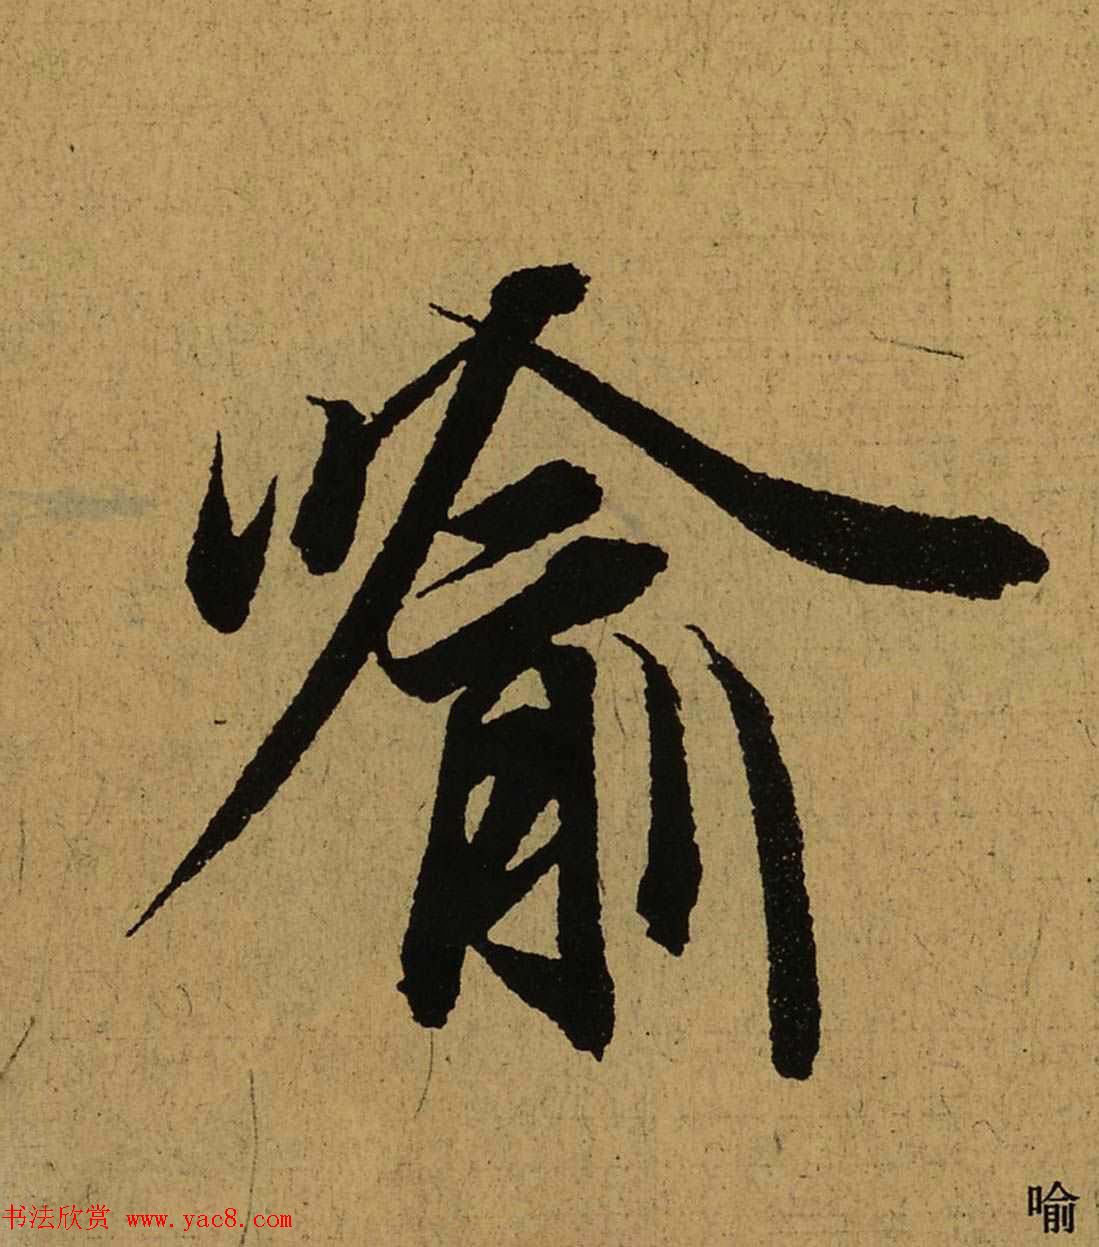 喻
喻
书法欣赏 www.yac8.com